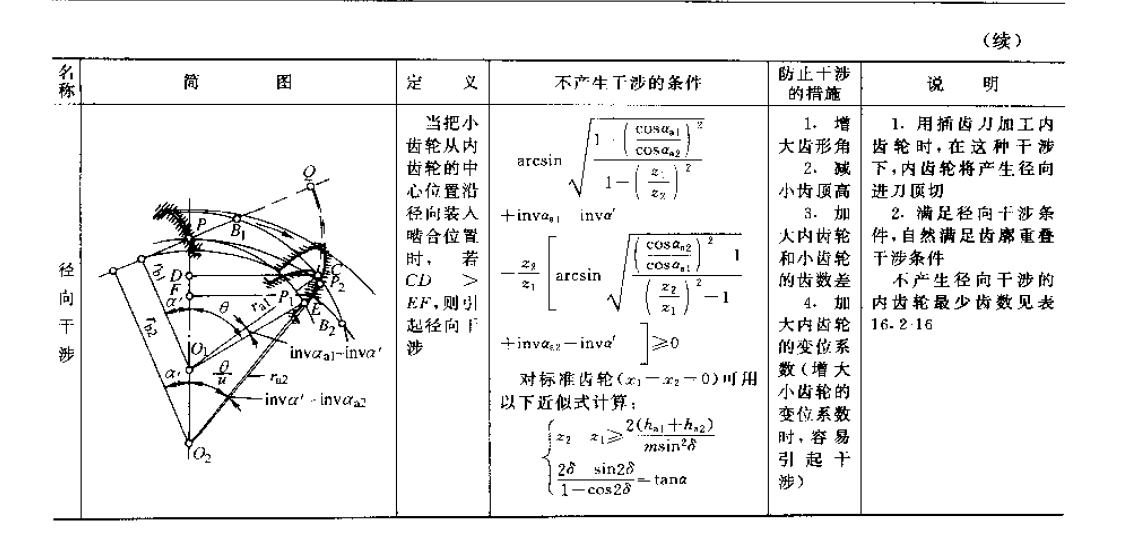 （续）
名称
简 图
定 义
不产生干涉的条件
防止干涉
的措施
说 明
径
向
干
涉
Q
P
B₁
D
F
C
P₂
P₁
E
B₂
r_b1
r_b2
r_a1
r_a2
α′
θ
O₁
invα_a1-invα′
θ/u
α′
invα′-invα_a2
O₂
当把小
齿轮从内
齿轮的中
心位置沿
径向装入
啮合位置
时， 若
CD >
EF，则引
起径向干
涉
arcsin √((1-(cosα_a1/cosα_a2)²)/(1-(z₁/z₂)²))
+invα_a1 invα′
-z₂/z₁[arcsin √(((cosα_a2/cosα_a1)² 1)/((z₂/z₁)²-1))
+invα_a2-invα′]≥0
对标准齿轮(x₁=x₂=0)可用
以下近似式计算：
z₂ z₁≥2(h_a1+h_a2)/(msin²δ)
(2δ sin2δ)/(1-cos2δ)=tanα
1. 增
大齿形角
2. 减
小齿顶高
3. 加
大内齿轮
和小齿轮
的齿数差
4. 加
大内齿轮
的变位系
数（增大
小齿轮的
变位系数
时，容易
引起干
涉）
1. 用插齿刀加工内
齿轮时，在这种干涉
下，内齿轮将产生径向
进刀顶切
2. 满足径向干涉条
件，自然满足齿廓重叠
干涉条件
不产生径向干涉的
内齿轮最少齿数见表
16.2-16